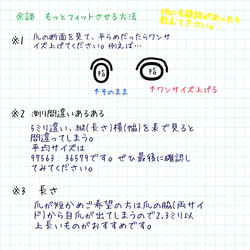 余談 もっとフィットさせる方法
他にも疑問があったら
教えて下さい。
※1 爪の断面を見て、平らめだったらワンサ
イズ上げてください。例えば…
幅 幅
↑そのまま ↑ワンサイズ上げる
※2 測り間違いあるある
5ミリ違い、縦(長さ)横(幅)を表で見ると
間違ってしまう。
平均サイズは
97563 36579です。ぜひ最後に確認し
てみてください。
※3 長さ
爪が短かめご希望の方は爪の脇(両サイ
ド)から自爪が出てしまうので2.3ミリ以上
長いものがおすすめです。